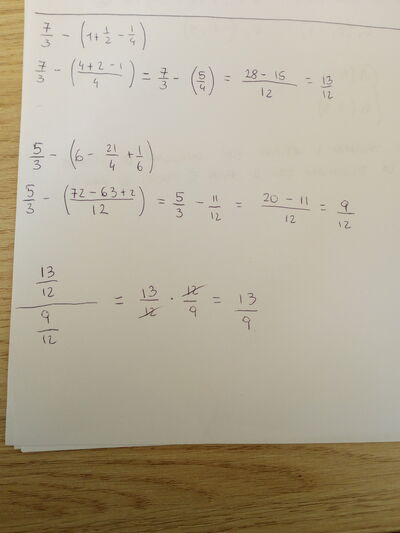 7/3 - (1 + 1/2 - 1/4)
7/3 - ((4 + 2 - 1)/4) = 7/3 - (5/4) = (28 - 15)/12 = 13/12
5/3 - (6 - 21/4 + 1/6)
5/3 - ((72 - 63 + 2)/12) = 5/3 - 11/12 = (20 - 11)/12 = 9/12
(13/12)/(9/12) = 13/12 · 12/9 = 13/9